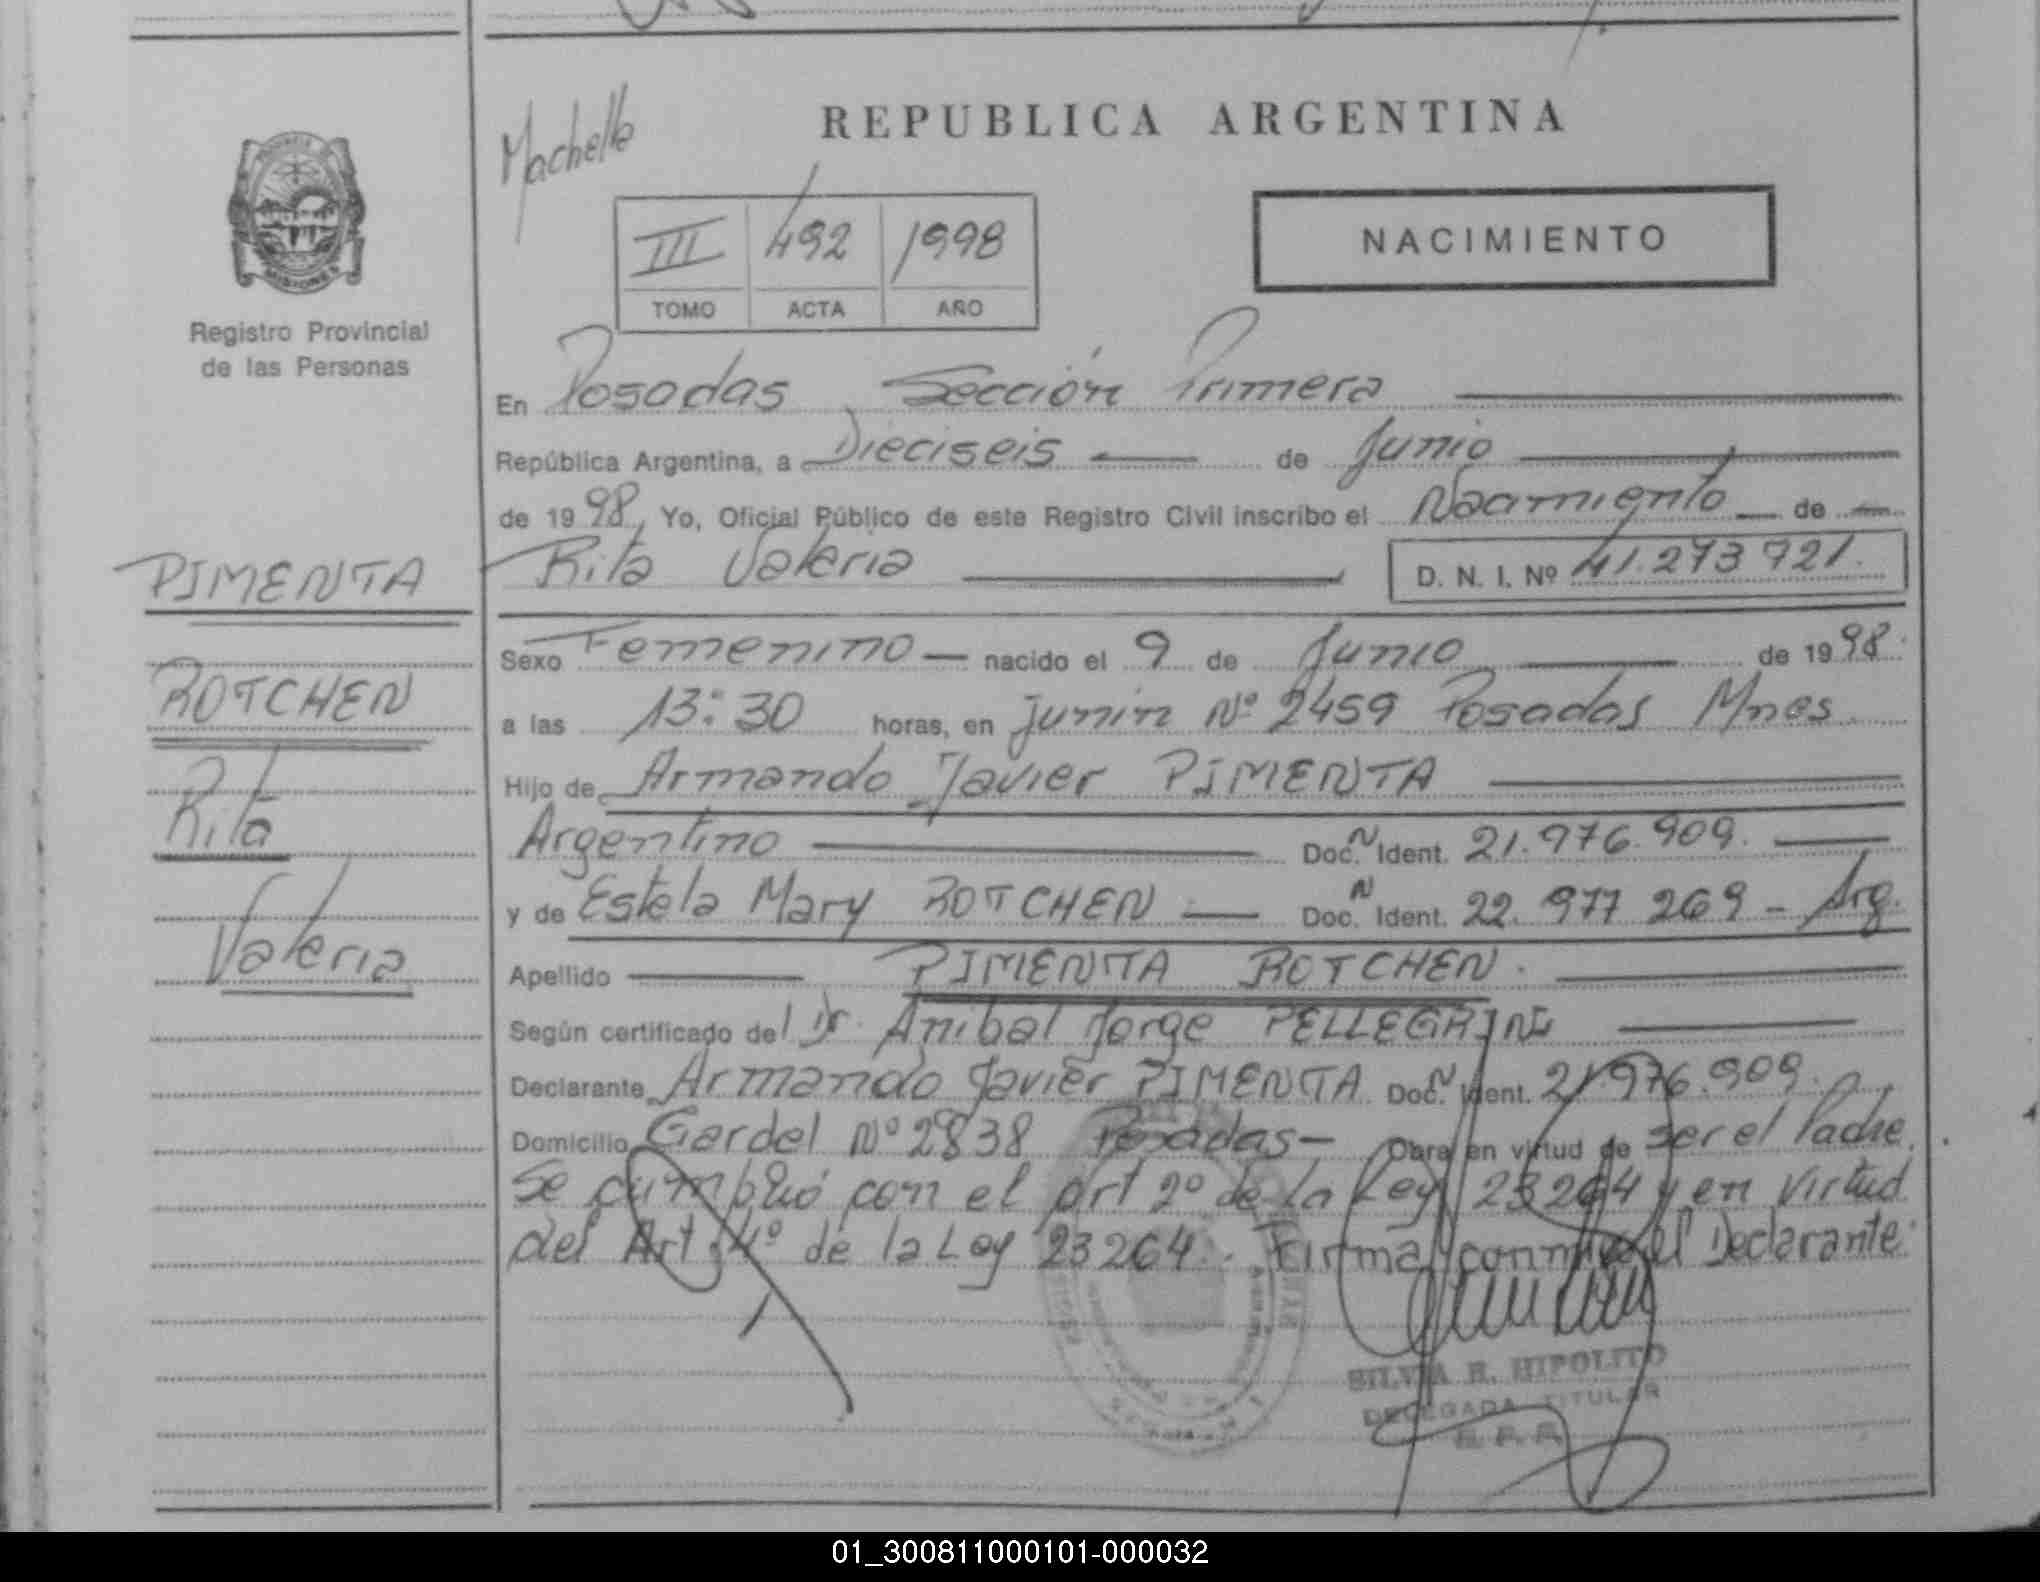 Machelle
REPUBLICA ARGENTINA
III 492 1998
TOMO ACTA AÑO
NACIMIENTO
MISIONES
Registro Provincial
de las Personas
En Posadas Sección Primera
República Argentina, a Dieciseis de Junio
de 1998, Yo, Oficial Público de este Registro Civil inscribo el Nacimiento de
Rita Valeria D. N. I. Nº 41.273 721.
PIMENTA
ROTCHEN
Rita
Valeria
Sexo Femenino nacido el 9 de Junio de 1998.
a las 13:30 horas, en Junín Nº 2459 Posadas Mnes.
Hijo de Armando Javier PIMENTA
Argentino Doc. N Ident. 21.976.909.
y de Estela Mary ROTCHEN Doc. N Ident. 22. 977 269 - Arg.
Apellido PIMENTA ROTCHEN.
Según certificado del Dr. Anibal Jorge PELLEGRINI
Declarante Armando Javier PIMENTA Doc. N Ident. 21.976.909.
Domicilio Gardel Nº 2838 Posadas- Obra en virtud de ser el Padre.
Se cumplió con el art 2º de la Ley 23264 y en virtud
del Art. 4º de la Ley 23264. Firma conmigo el Declarante.
SILVIA R. HIPOLITO
DELEGADA TITULAR
R. P. P.
01_300811000101-000032